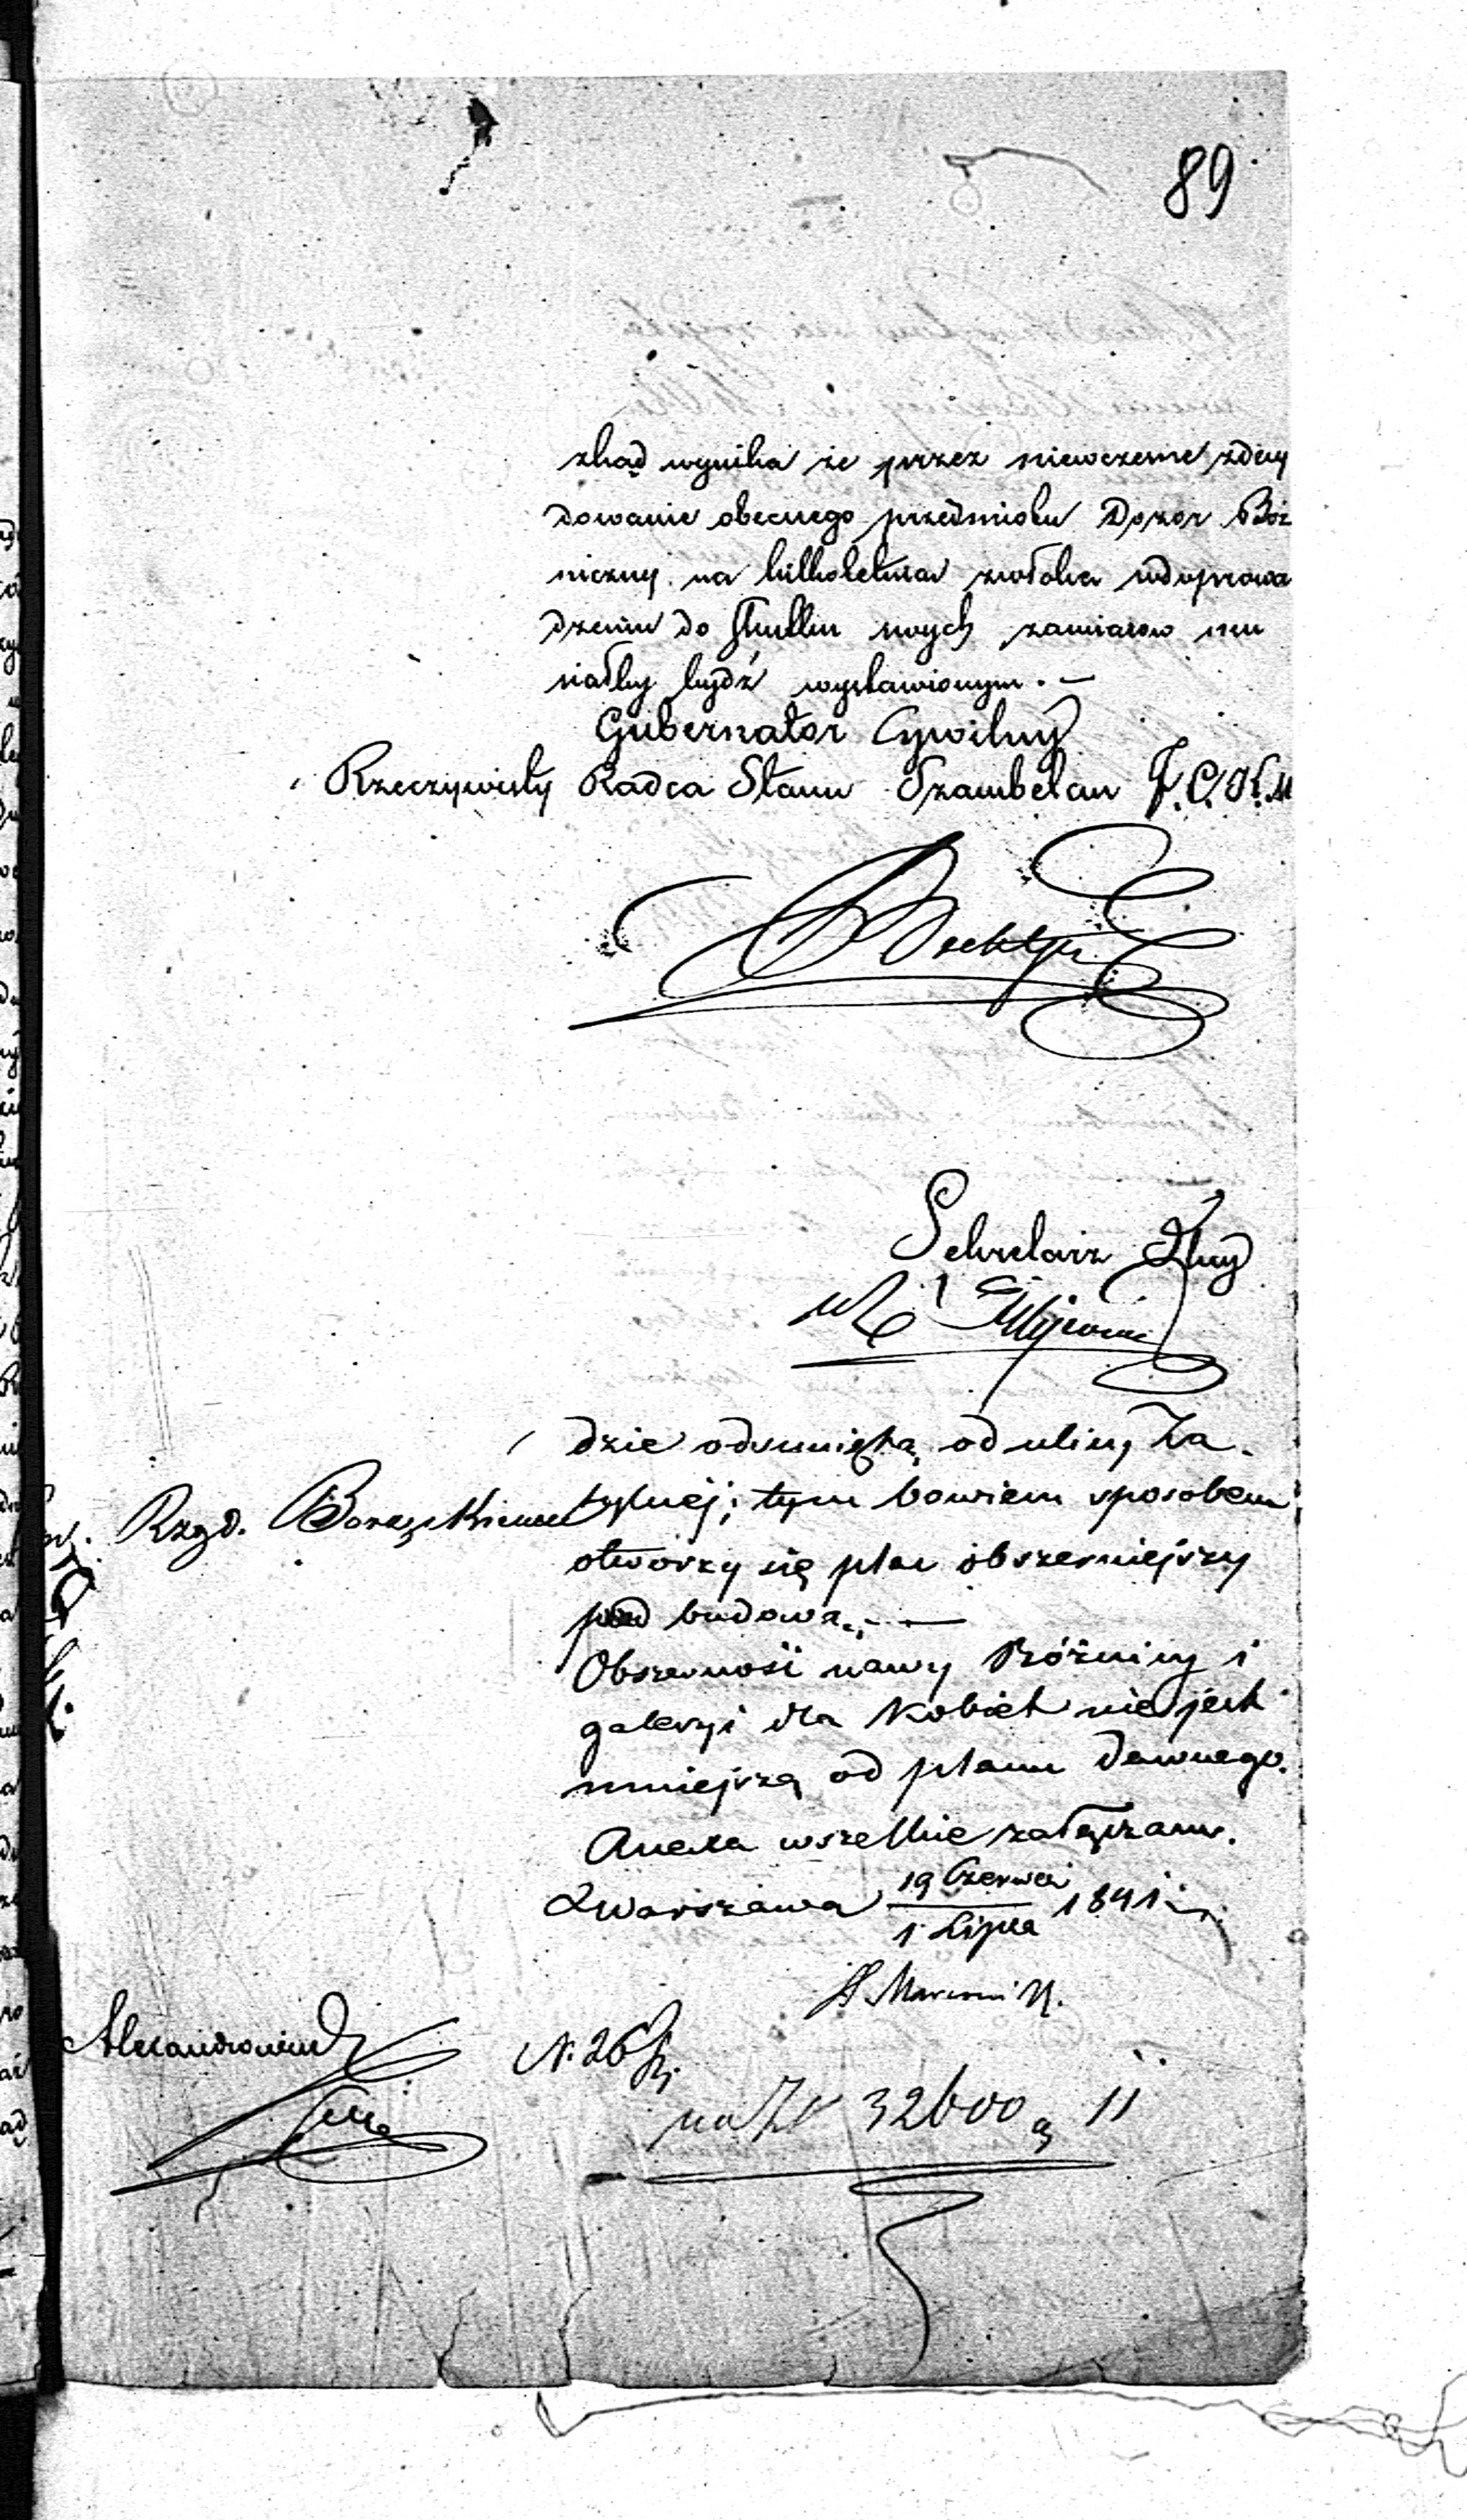 89
zkąd wynika że przez niewczesne zdecy
dowanie obecnego przedmiotu Dozor Boż
niczny na kilkoletnia zwłoka w doprowa
dzeniu do skutku swych zamiarow mu
siałby bydź wystawionym. —
Gubernator Cywilny
Rzeczywisty Radca Stanu Szambelan J. C. K. M
Sekretarz Jlny
dzie odsunięta od ulicy Za-
tylnéj; tym bowiem sposobem
Rzgd.
otworzy się plac obszerniejszy
pod budowa. —
Obszerność nawy Bóżnicy i
galeryi dla Kobiet nie jest
mniejszą od planu dawnego.
Anexa wszelkie załączam.
Warszawa 19 Czerwca / 1 Lipca 1841
H. Marconi
N. 26
na 32600